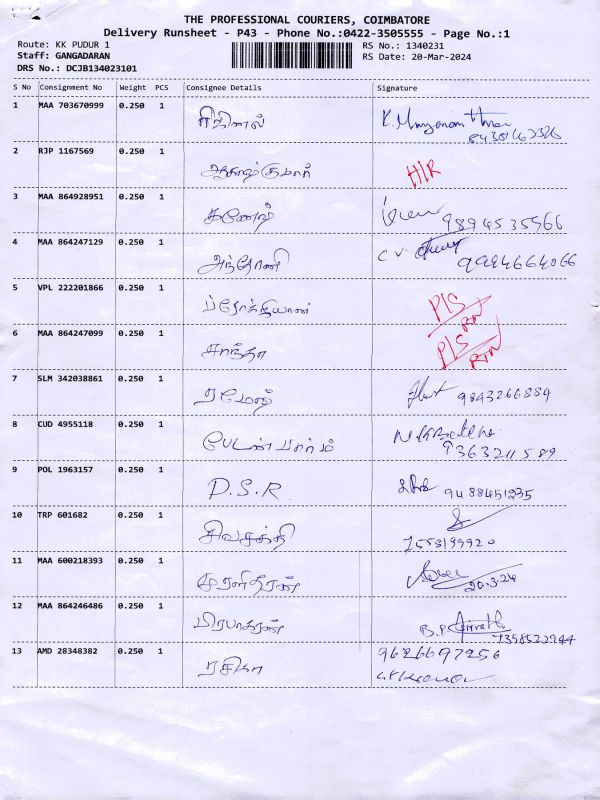 THE PROFESSIONAL COURIERS, COIMBATORE
Delivery Runsheet - P43 - Phone No.:0422-3505555 - Page No.:1
Route: KK PUDUR 1 RS No.: 1340231
Staff: GANGADARAN RS Date: 20-Mar-2024
DRS No.: DCJB134023101
S No Consignment No Weight PCS Consignee Details Signature
1 MAA 703670999 0.250 1
2 RJP 1167569 0.250 1 ஆகாஷ்குமார் H/R
3 MAA 864928951 0.250 1 கணேஷ்
9894535566
4 MAA 864247129 0.250 1 அந்தோணி C.V
9994664066
5 VPL 222201866 0.250 1 P/S
RTN
6 MAA 864247099 0.250 1 சாந்தா P/S
RTN
7 SLM 342038861 0.250 1 ரமேஷ் 9843266884
8 CUD 4955118 0.250 1
9363211589
9 POL 1963157 0.250 1 D.S.R 9488451235
10 TRP 601682 0.250 1 சிவசக்தி
7558199920
11 MAA 600218393 0.250 1 முரளிதரன்
20.3.24
12 MAA 864246486 0.250 1 பிரபாகரன் B.P
7358522944
13 AMD 28348382 0.250 1 ரசிகா 9626697256